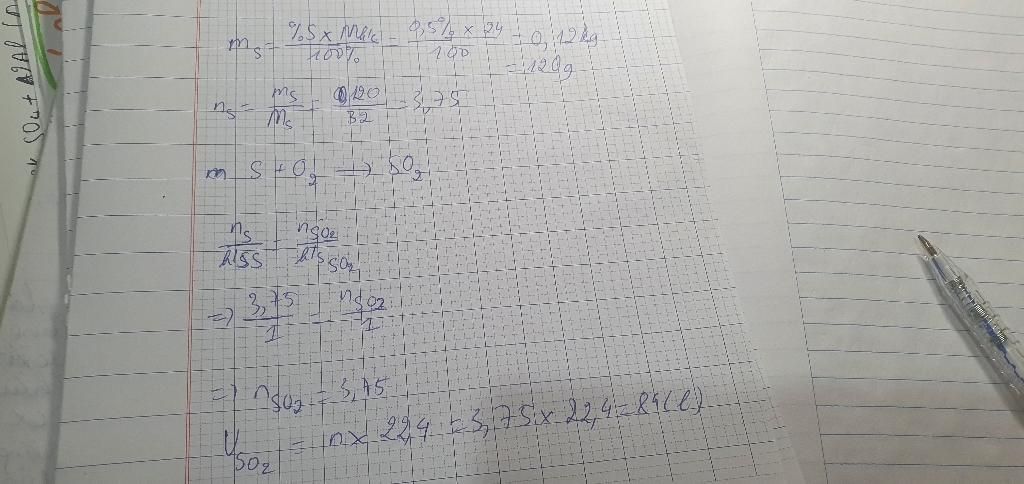 m_S = %S x M_đlc / 100% = 0,5% x 24 / 100 = 0,12kg
= 120g
n_S = m_S / M_S = 0,120 / 32 = 3,75
m S + O₂ ⟹ SO₂
n_S / HSS = n_SO₂ / HS_SO₂
=> 3,75 / 1 = n_SO₂ / 1
=> n_SO₂ = 3,75
V_SO₂ = n x 22,4 = 3,75 x 22,4 = 84 (l)